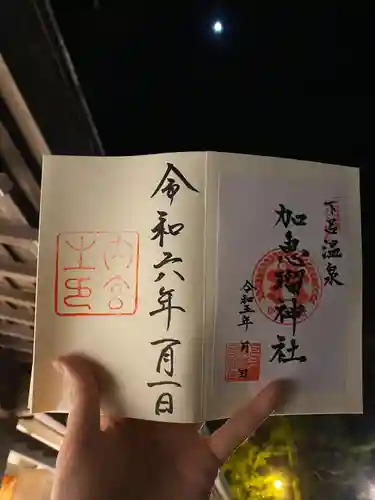 下呂温泉
加恵瑠神社
令和五年 月 日
令和六年一月一日
内宮
之印